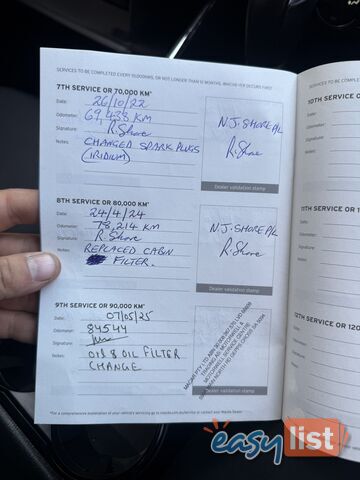 SERVICES TO BE COMPLETED EVERY 10,000KMS, OR NOT LONGER THAN 12 MONTHS, WHICHEVER OCCURS FIRST
7TH SERVICE OR 70,000 KM*
Date: 26/10/22
Odometer: 69,433 KM
Signature: R. Shore
Notes: CHANGED SPARK PLUGS
(IRIDIUM)
N.J. SHORE P/L
R. Shore
Dealer validation stamp
8TH SERVICE OR 80,000 KM*
Date: 24/4/24
Odometer: 78,214 KM
Signature: R. Shore
Notes: REPLACED CABIN
FILTER.
N.J. SHORE P/L
R. Shore
Dealer validation stamp
9TH SERVICE OR 90,000 KM*
Date: 07/05/25
Odometer: 84544
Signature:
Notes: OIL & OIL FILTER
CHANGE
Dealer validation stamp
*For a comprehensive explanation of your vehicle's servicing go to mazda.com.au/service or contact your Mazda Dealer
10TH SERVICE OR
Date:
Odometer:
Signature:
Notes:
11TH SERVICE OR 1
Date:
Odometer:
Signature:
Notes:
12TH SERVICE OR 120
Date:
Odometer:
Signature:
Notes:
easylist